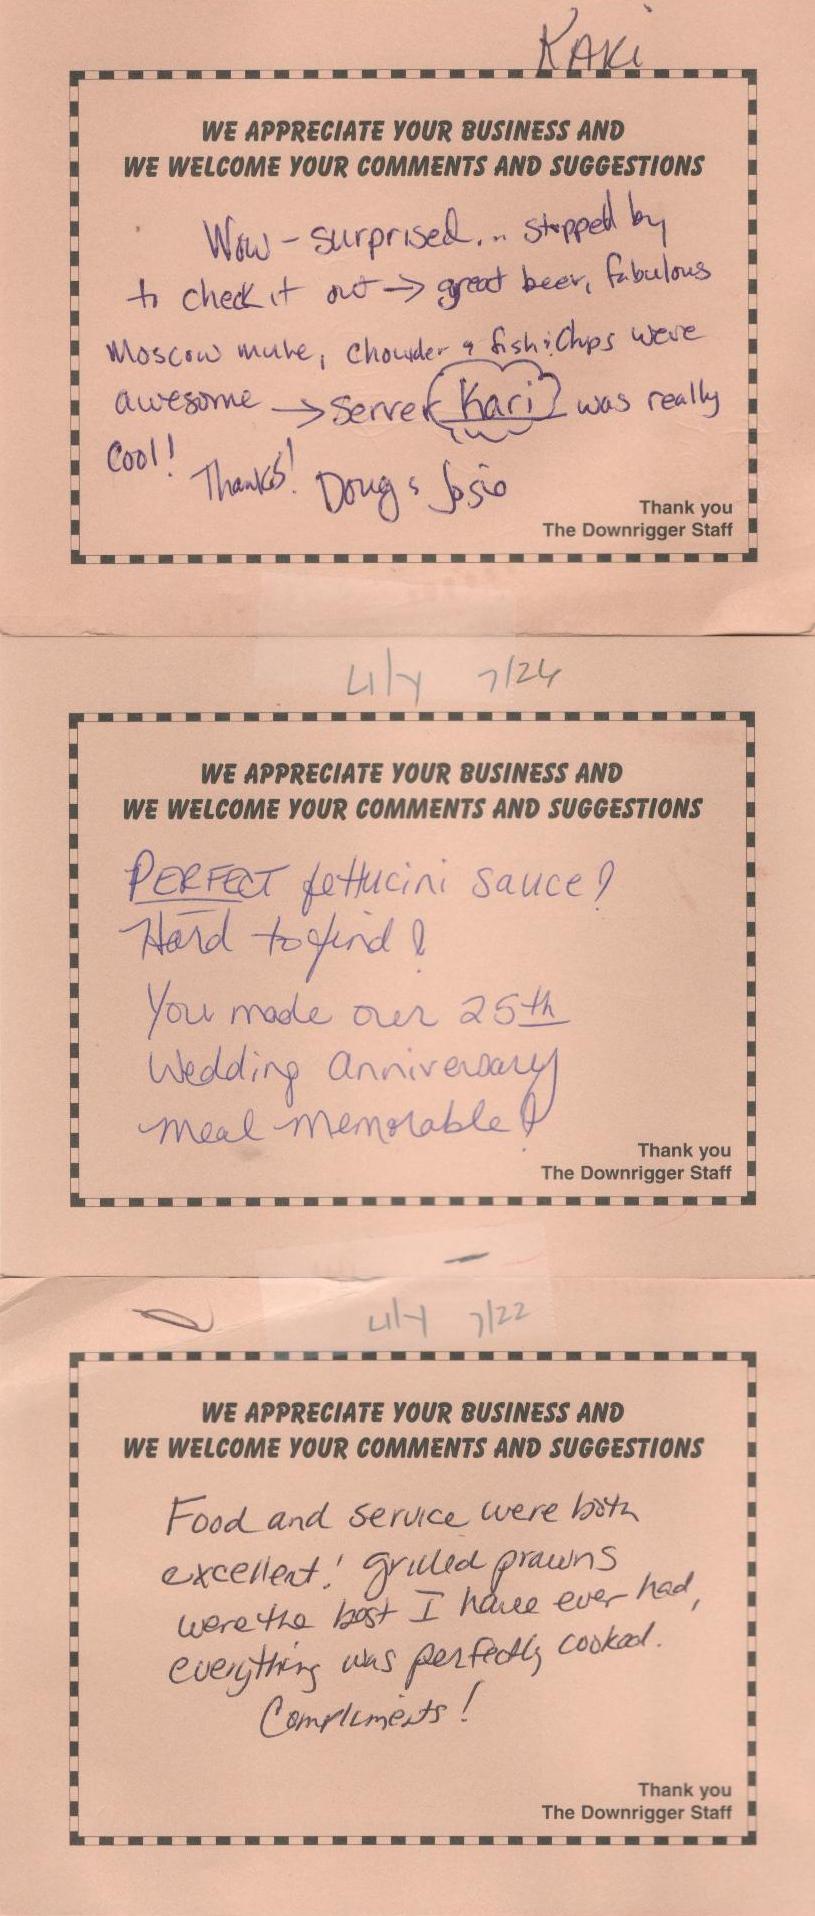 KAKi
WE APPRECIATE YOUR BUSINESS AND
WE WELCOME YOUR COMMENTS AND SUGGESTIONS
Wow - surprised... stopped by
to check it out → great beer, fabulous
Moscow mule, chowder & fish & Chips were
awesome → server Kari was really
Cool!
Thanks! Doug & Josie
Thank you
The Downrigger Staff
Lily 7/24
WE APPRECIATE YOUR BUSINESS AND
WE WELCOME YOUR COMMENTS AND SUGGESTIONS
PERFECT fettucini sauce!
Hard to find!
You made our 25th
Wedding Anniversary
meal memorable!
Thank you
The Downrigger Staff
Lily 7/22
WE APPRECIATE YOUR BUSINESS AND
WE WELCOME YOUR COMMENTS AND SUGGESTIONS
Food and service were both
excellent! grilled prawns
were the best I have ever had,
everything was perfectly cooked.
Compliments!
Thank you
The Downrigger Staff